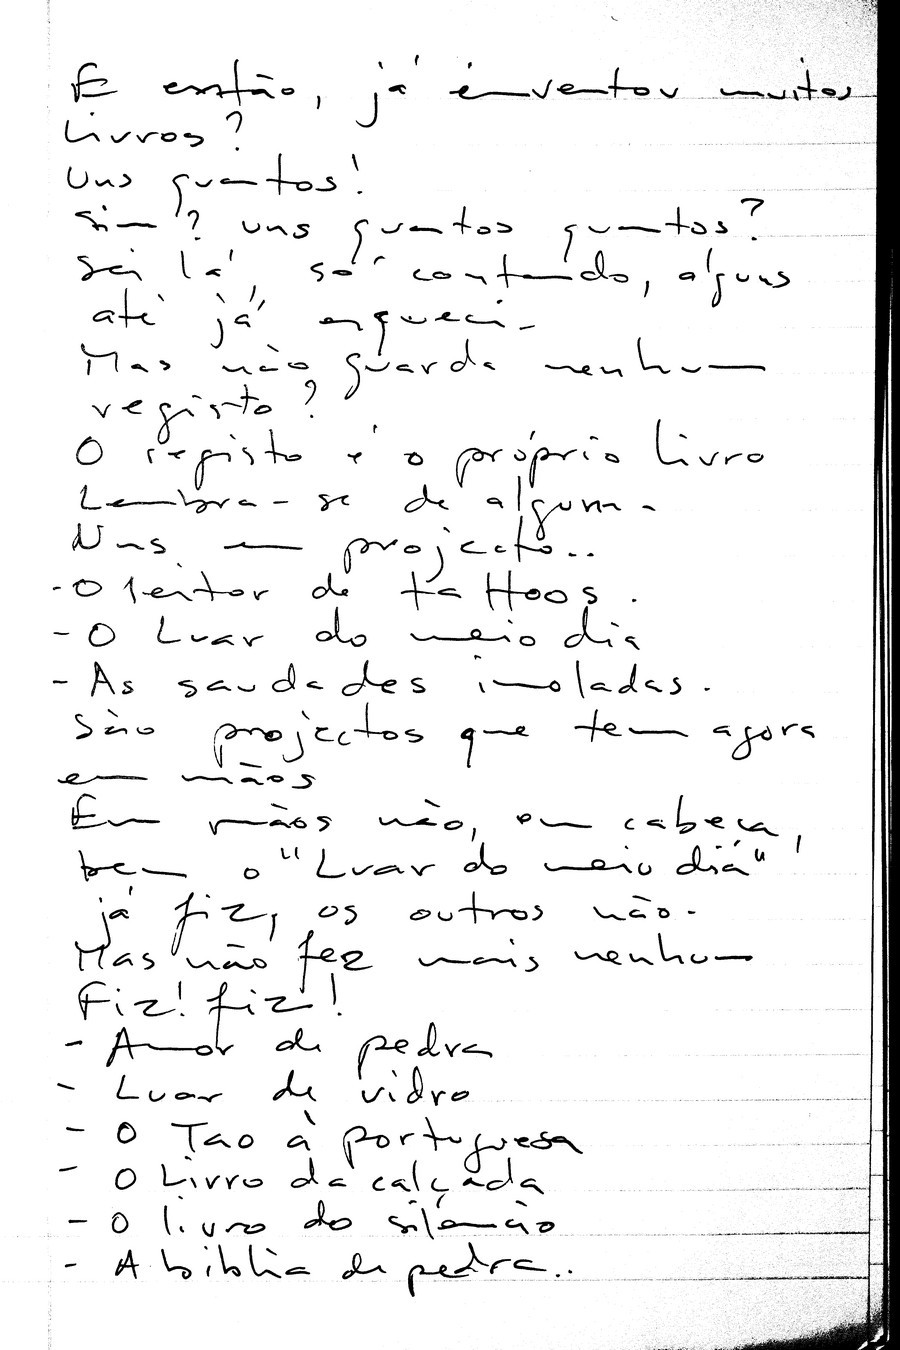 E então, já inventou muitos
livros?
Uns quantos!
Sim? uns quantos quantos?
Sei lá, só contando, alguns
até já esqueci.
Mas não guarda nenhum
registo?
O registo é o próprio livro
Lembra-se de algum.
Uns em projecto..
- O leitor de tattoos.
- O Luar do meio dia
- As saudades isoladas.
São projectos que tem agora
em mãos
Em mãos não, em cabeça,
bem o "Luar do meio dia"
já fiz, os outros não.
Mas não fez mais nenhum
Fiz! fiz!
- Amor de pedra
- Luar de vidro
- O Tao à portuguesa
- O Livro da calçada
- O livro do silêncio
- A bíblia de pedra..